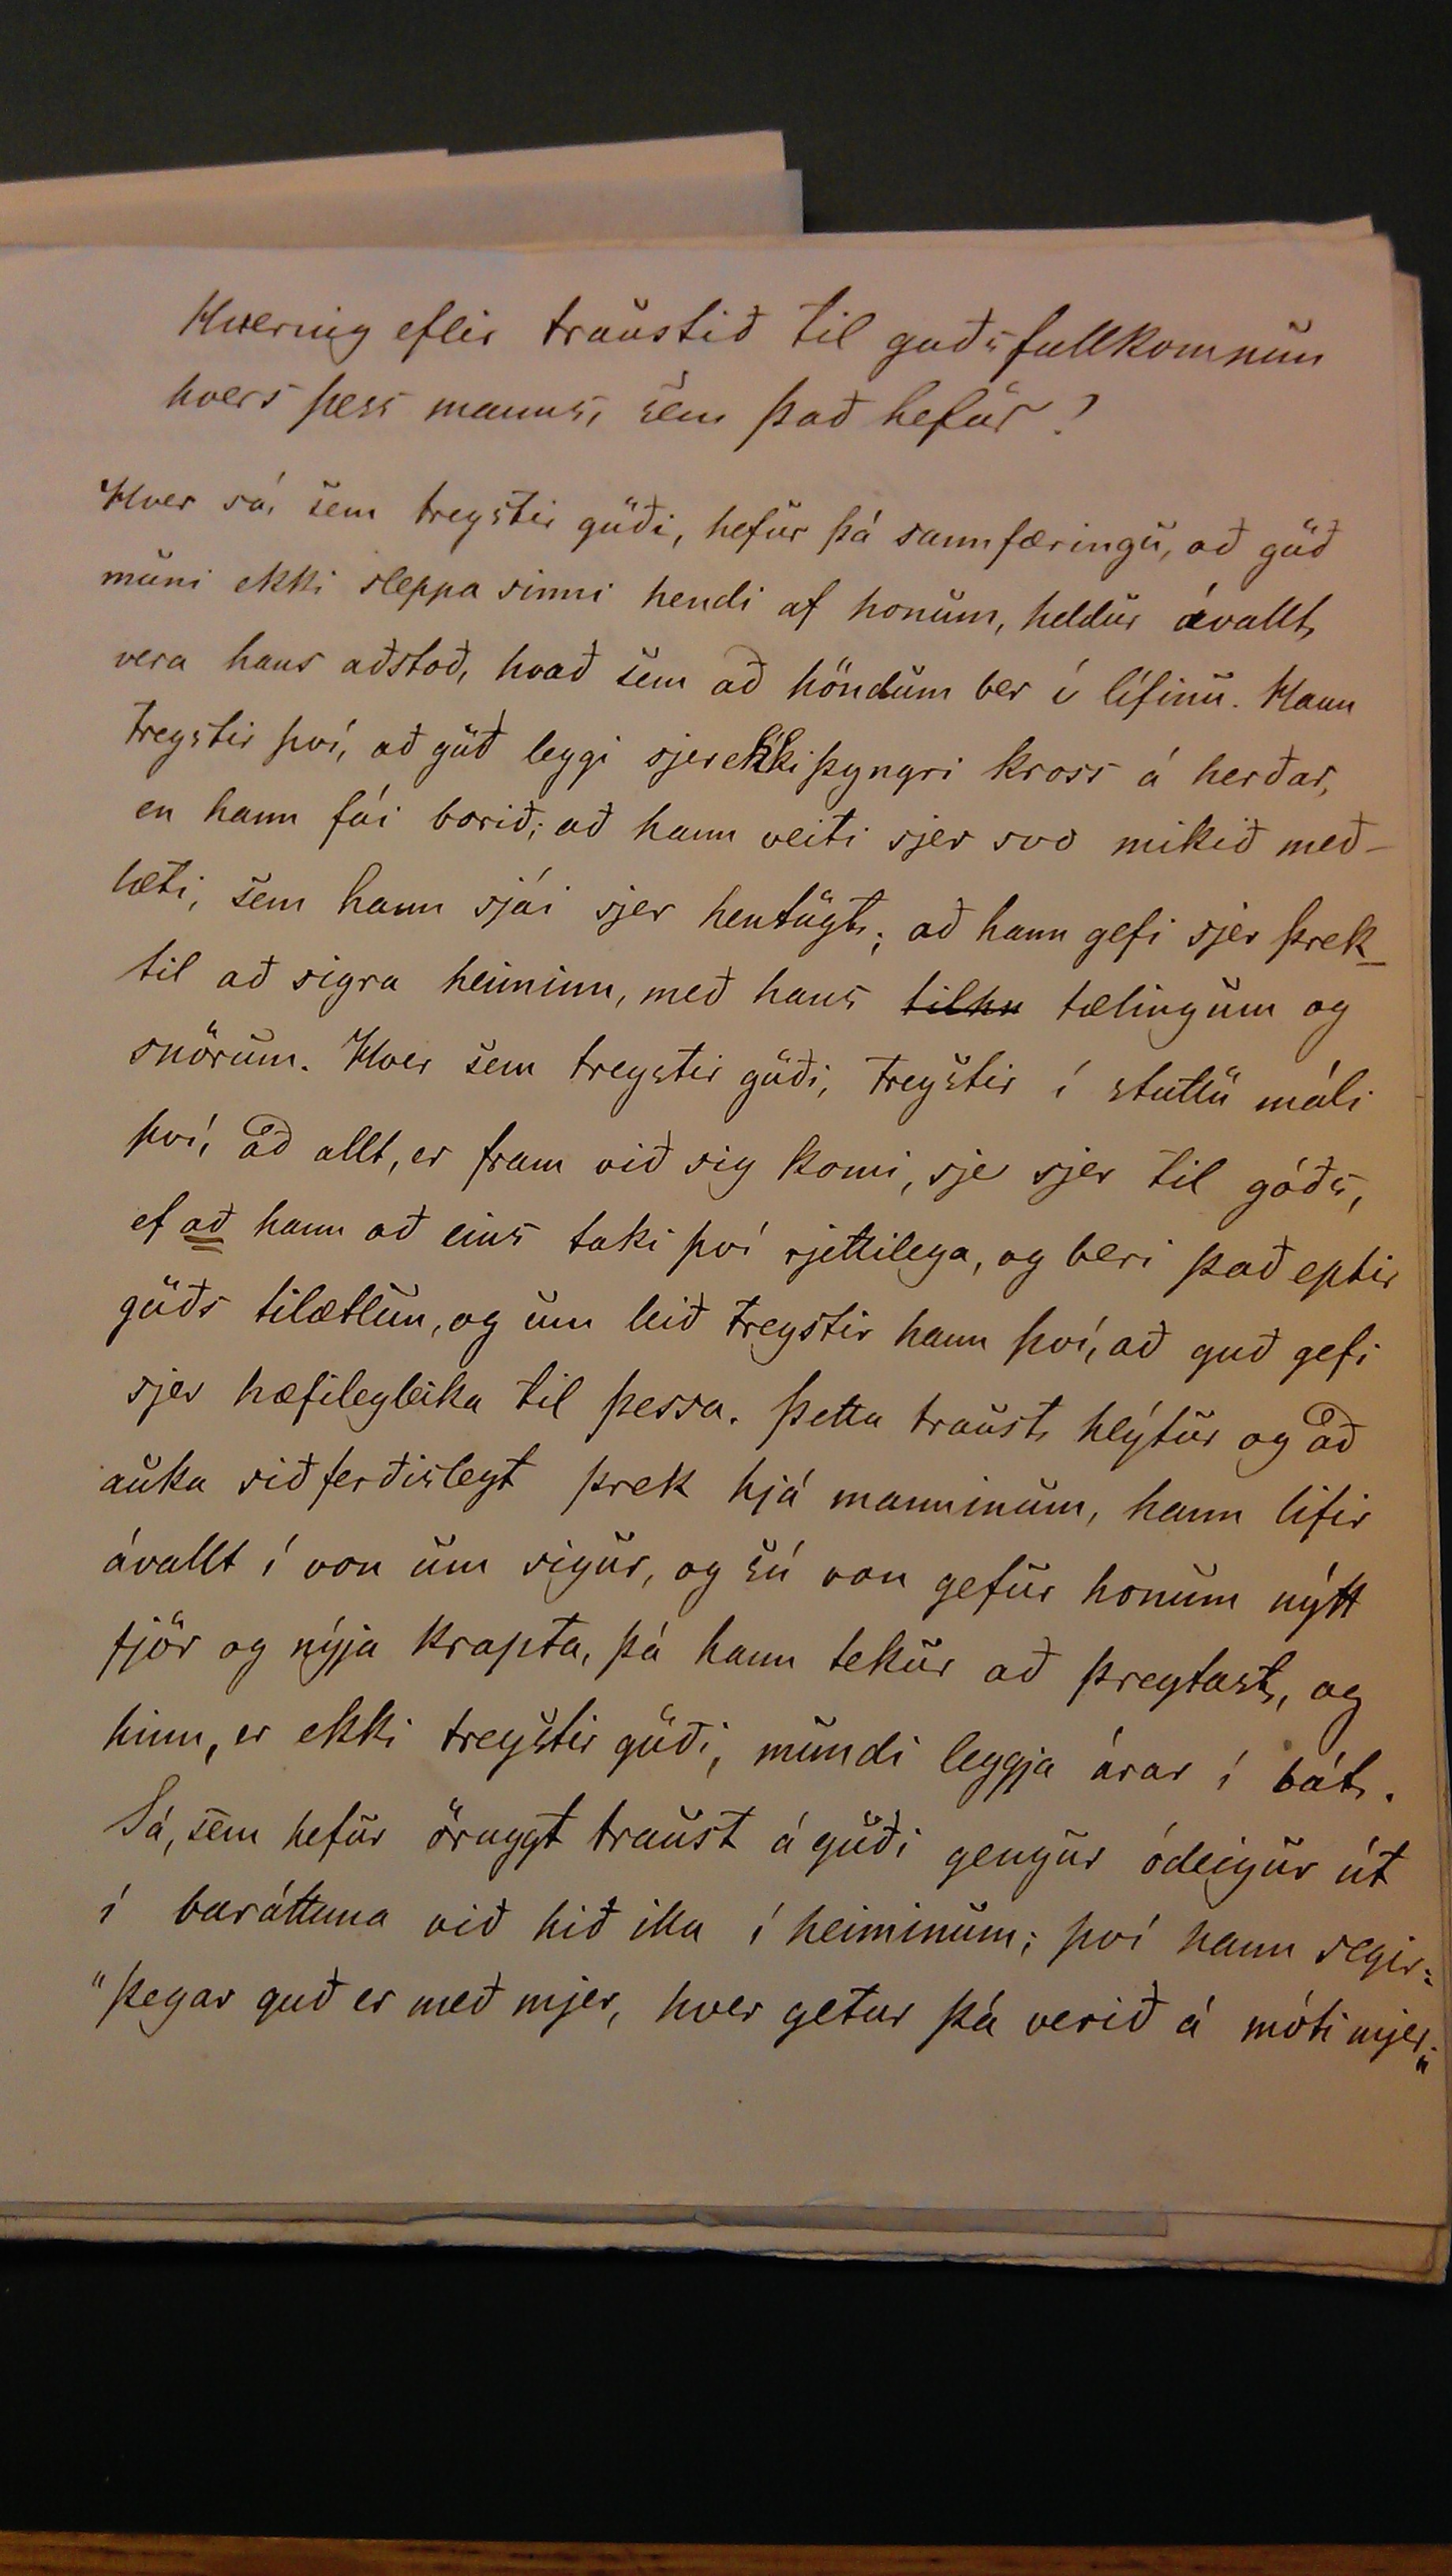 Hvernig eflir traustið til guðs fullkomnun
hvers þess manns, sem það hefur?
Hver sá, sem treystir guði, hefur þá sannfæringu, að guð
muni ekki sleppa sinni hendi af honum, heldur ávallt
vera hans aðstoð, hvað sem að höndum ber í lífinu. Hann
treystir því, að guð leggi sjer ekki þyngri kross á herðar,
en hann fái borið; að hann veiti sjer svo mikið með-
læti, sem hann sjái sjer hentugt; að hann gefi sjer þrek
til að sigra heiminn, með hans tilhn tælingum og
snörum. Hver sem treystir guði, treystir í stuttu máli
því, að allt, er fram við sig komi, sje sjer til góðs,
ef að hann að eins taki því rjettilega, og beri það eptir
guðs tilætlun, og um leið treystir hann því, að guð gefi
sjer hæfilegleika til þessa. Þetta traust hlýtur og að
auka siðferðislegt þrek hjá manninum, hann lifir
ávallt í von um sigur, og sú von gefur honum nýtt
fjör og nýja krapta, þá hann tekur að þreytast, og
hinn, er ekki treystir guði, mundi leggja árar í bát.
Sá, sem hefur öruggt traust á guði gengur ódeigur út
í baráttuna við hið illa í heiminum; því hann segir:
"Þegar guð er með mjer, hver getur þá verið á móti mjer."